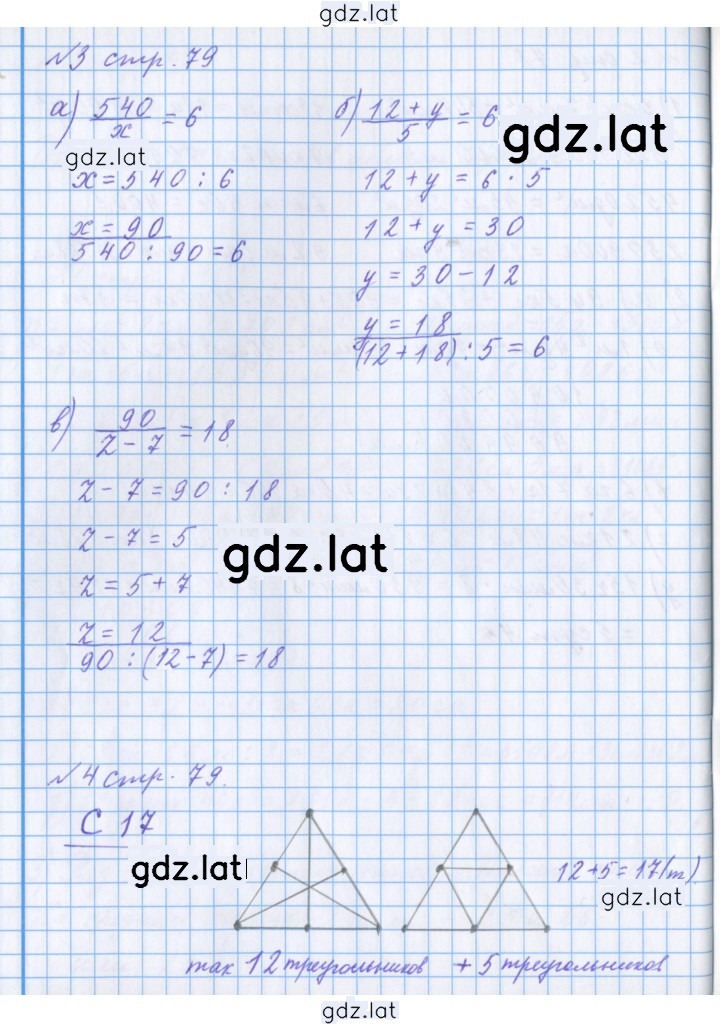 gdz.lat
№3 стр. 79
а) 540/x = 6
б) (12 + y)/5 = 6
gdz.lat
gdz.lat
x = 540 : 6
12 + y = 6 · 5
x = 90
12 + y = 30
540 : 90 = 6
y = 30 - 12
y = 18
(12 + 18) : 5 = 6
в) 90/(z - 7) = 18
z - 7 = 90 : 18
z - 7 = 5
gdz.lat
z = 5 + 7
z = 12
90 : (12 - 7) = 18
№4 стр. 79.
С 17
gdz.lat
12 + 5 = 17 (т)
gdz.lat
max 12 треугольников + 5 треугольников
gdz.lat